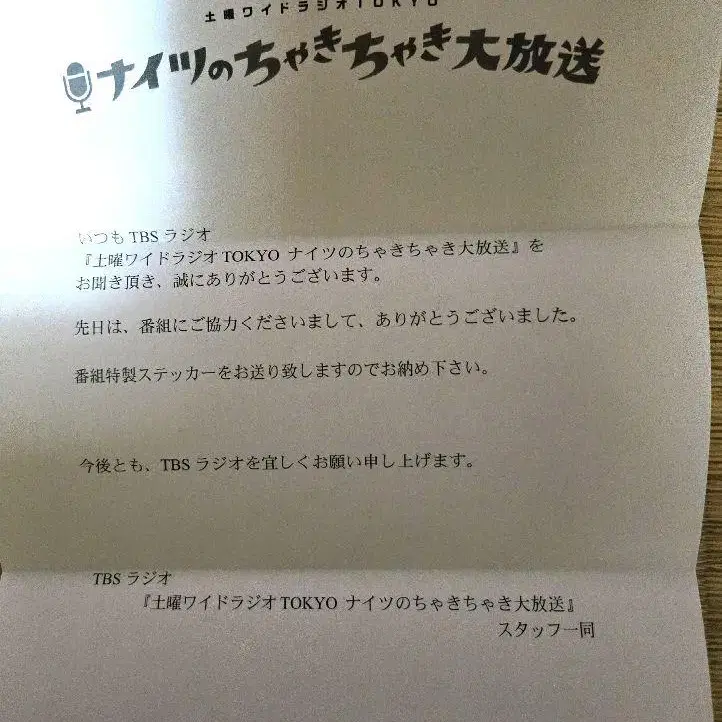 土曜ワイドラジオTOKYO
ナイツのちゃきちゃき大放送
いつもTBSラジオ
『土曜ワイドラジオTOKYO ナイツのちゃきちゃき大放送』を
お聞き頂き、誠にありがとうございます。
先日は、番組にご協力くださいまして、ありがとうございました。
番組特製ステッカーをお送り致しますのでお納め下さい。
今後とも、TBSラジオを宜しくお願い申し上げます。
TBSラジオ
『土曜ワイドラジオTOKYO ナイツのちゃきちゃき大放送』
スタッフ一同